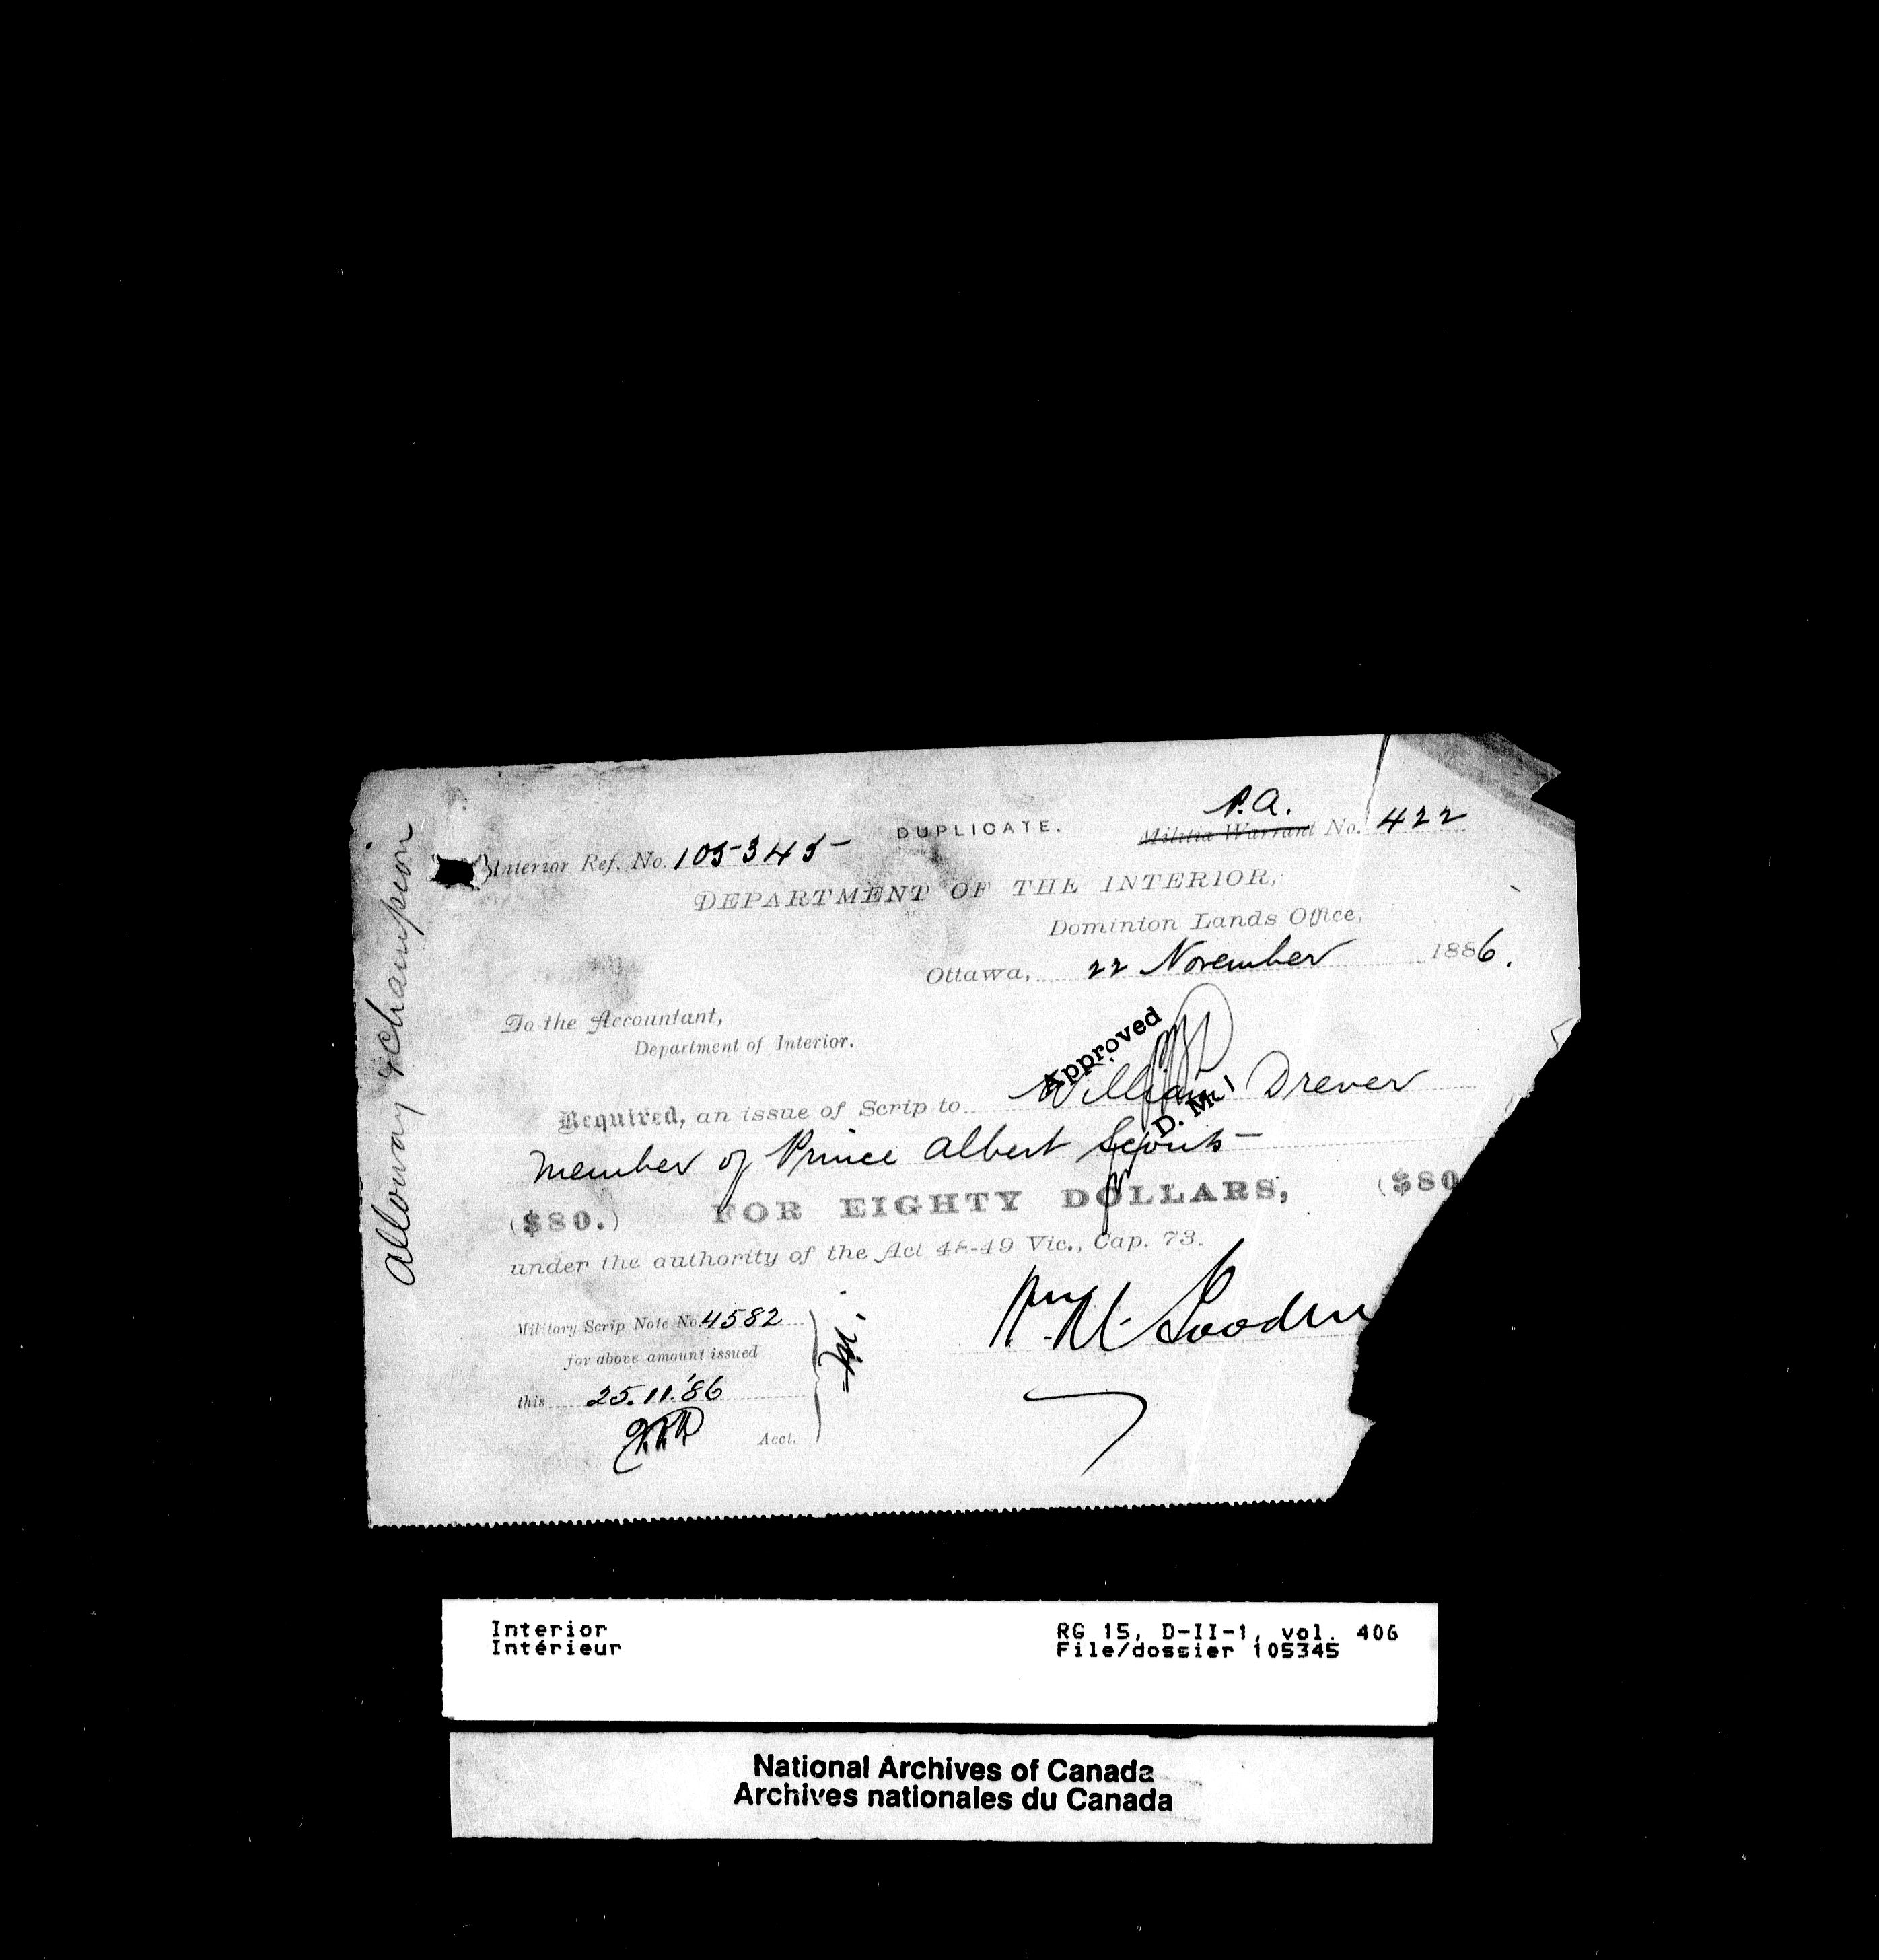 P.A.
DUPLICATE.
Militia Warrant No. 422
Interior Ref. No. 105345
DEPARTMENT OF THE INTERIOR,
Dominion Lands Office,
Ottawa, 22 November 1886.
To the Accountant,
Department of Interior.
Approved
D. M. I
Required, an issue of Scrip to William Drever
member of Prince Albert Scouts—
($80.) FOR EIGHTY DOLLARS, ($80
under the authority of the Act 48-49 Vic., Cap. 73.
Military Scrip Note No. 4582
for above amount issued
this 25.11.'86
Acct.
Alloway & Champion
Interior
Intérieur
RG 15, D-II-1, vol. 406
File/dossier 105345
National Archives of Canada
Archives nationales du Canada